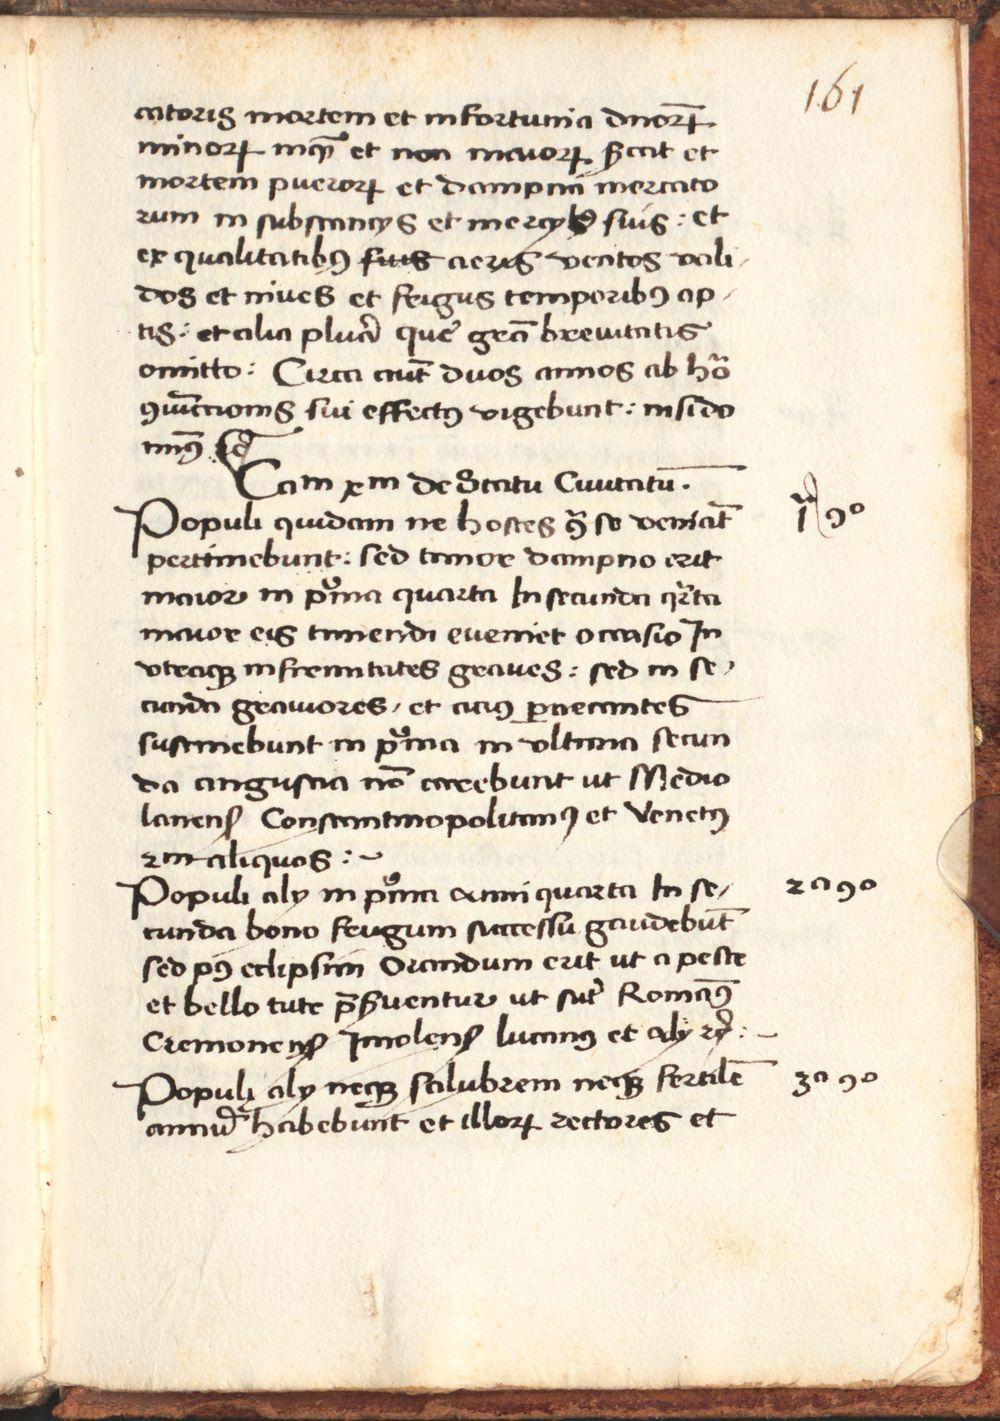 161
catoris mortem et infortunia dnorꝝ
minorꝝ inqꝫ et non maiorꝝ et
mortem puerorꝝ et dampni mercato
rum in substancys et mercybꝰ suis: et
ex qualitatibꝰ suis aeris ventos vali
dos et nives et frigus temporibꝰ ap
tis: et alia pluā que grā brevitatis
omitto: Circa aut̄ duos annos ab
ꝯiūctionis sui effectꝰ vigebunt:
Cam xm de Statu Civitatū.
Populi quidam ne hostes se veniāt
pertimebunt: sed timor dampno erit
maior in pͥma quarta In secunda qͣrta
maior eis timendi eveniet occasio In
utraqꝫ infirmitates graves: sed in se
cunda graviores, et aciꝰ
sustinebunt in pͥma in ultima secun
da angustia nō carebunt ut Medio
lanenẜ Constantinopolitanꝰ et Venetꝰ
aliquos:~
Populi aly in pͥma anni quarta In se
cunda bono frugum successu gaudebūt
sed pꝰ eclipsim Orandum erit ut a peste
et bello tute p̄ẜventur ut sūt Romāꝰ
Cremonenẜ Imolenẜ lucanꝰ et aly
Populi aly neqꝫ salubrem neqꝫ fertilē
annū habebunt et illorꝝ rectores et
1ͣ 9o
2a 9o
3a 9o